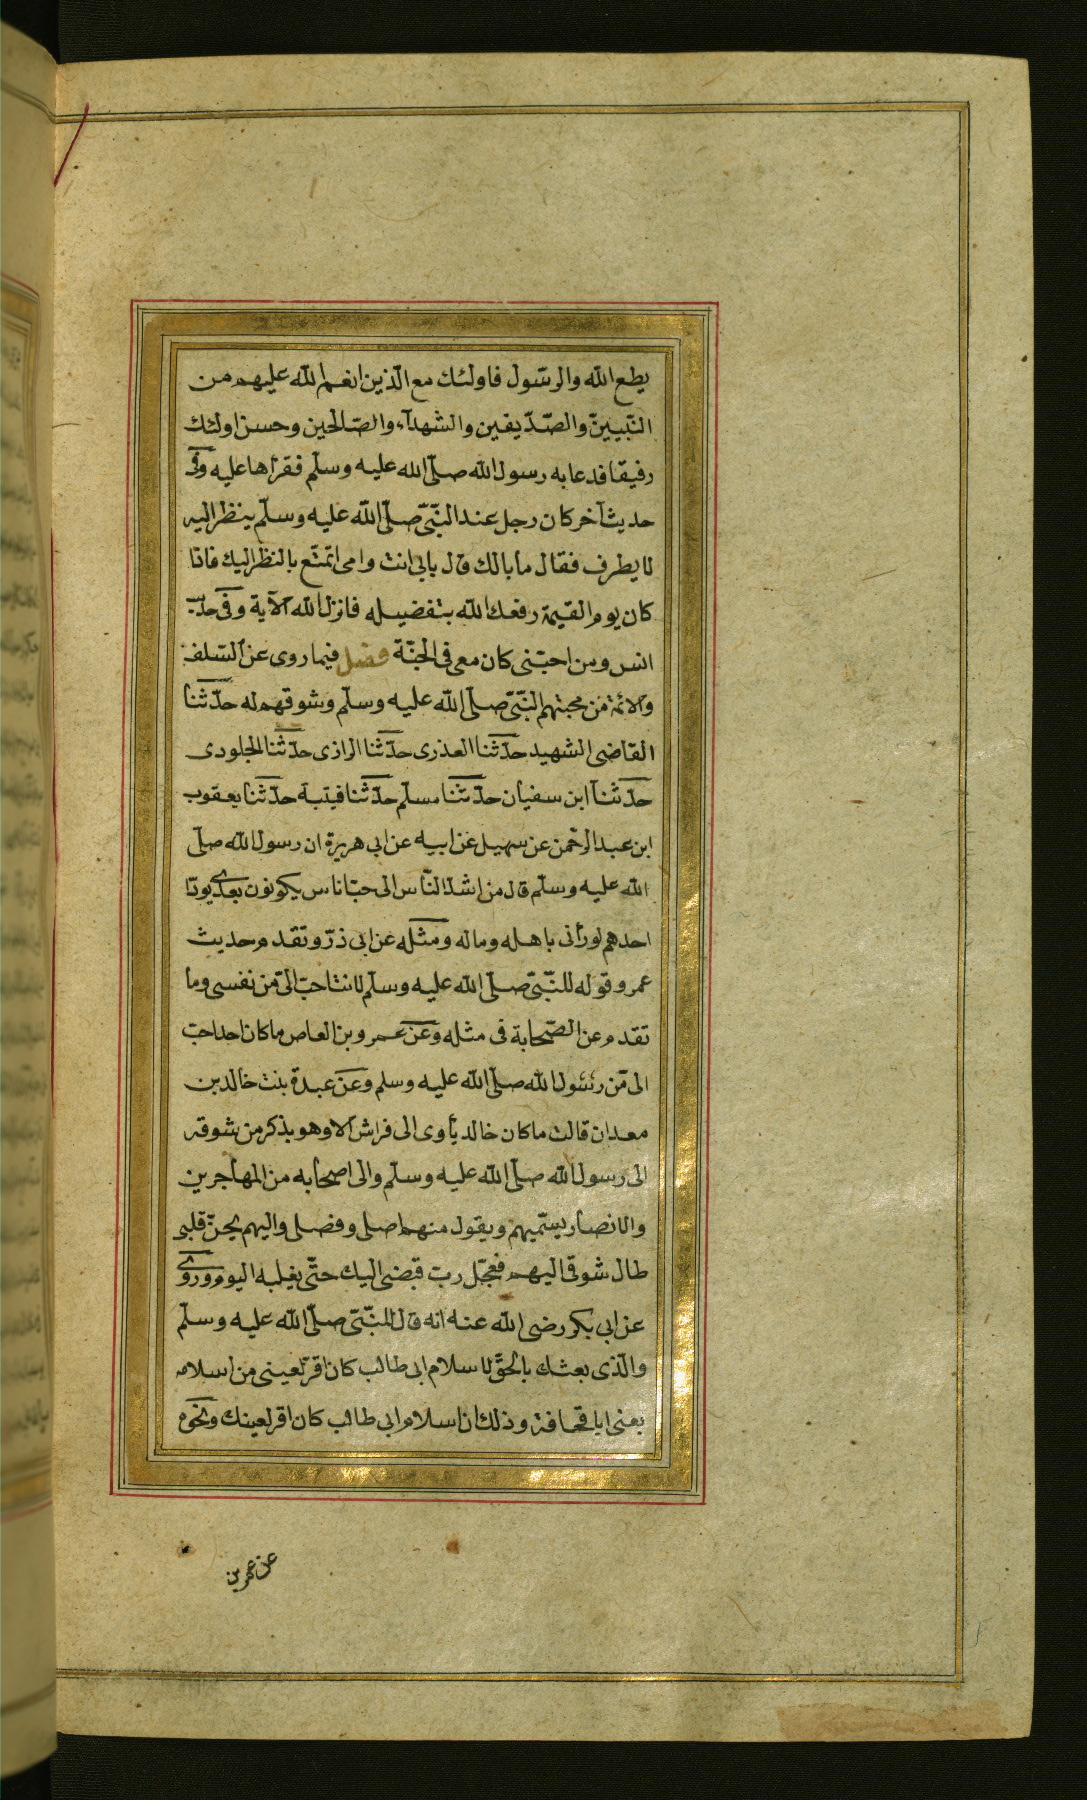 يطع الله والرسول فاولئك مع الّذين انعم الله عليهم من
النّبيينّ والصّدّيقين والشهدآء والصّالحين وحسن اولئك
رفيقا فدعا به رسول الله صلّى الله عليه وسلّم فقراها عليه وفى
حديث آخر كان رجل عند النّبىّ صلّى الله عليه وسلّم ينظر اليه
لا يطرف فقال ما بالك قال بابى انت وامى اتمتّع بالنظر اليك فاذا
كان يوم القيمة رفعك الله بتفضيله فانزل الله الآية وفى حديث
انس ومن احبّنى كان معى فى الجنّة فصل فيما روى عن السّلف
والائمّة من محبتهم للنّبىّ صلّى الله عليه وسلّم وشوقهم له حدّثنا
القاضى الشهيد حدّثنا العذرى حدّثنا الرازى حدّثنا الجلودى
حدّثنا ابن سفيان حدّثنا مسلم حدّثنا قتيبة حدّثنا يعقوب
ابن عبد الرّحمن عن سهيل عن ابيه عن ابى هريرة ان رسول الله صلّى
الله عليه وسلّم قال من اشدّ النّاس الى حبّا ناس يكونون بعدى يودّ
احدهم لو رأنى باهله وماله ومثله عن ابى ذرّ وتقدم حديث
عمر وقوله للنّبىّ صلّى الله عليه وسلّم لانت احبّ الىّ من نفسى وما
تقدم عن الصّحابة فى مثله وعن عمرو بن العاص ما كان احد احبّ
الىّ من رسول الله صلّى الله عليه وسلم وعن عبدة بنت خالد بن
معدان قالت ما كان خالد يأوى الى فراش الا وهو يذكر من شوقه
الى رسول الله صلّى الله عليه وسلّم والى اصحابه من المهاجرين
والانصار يسمّيهم ويقول منهم اصلى وفصلى واليهم يحنّ قلبى
طال شوقى اليهم فعجّل ربّ قبضى اليك حتّى يغلبه النوم وروى
عن ابى بكر رضى الله عنه انه قال للنّبىّ صلّى الله عليه وسلّم
والّذى بعثك بالحقّ لاسلام ابى طالب كان اقرّ لعينى من اسلامه
يعنى ابا قحافة وذلك ان اسلام ابى طالب كان اقر لعينك ونحوه
عن عمر بن